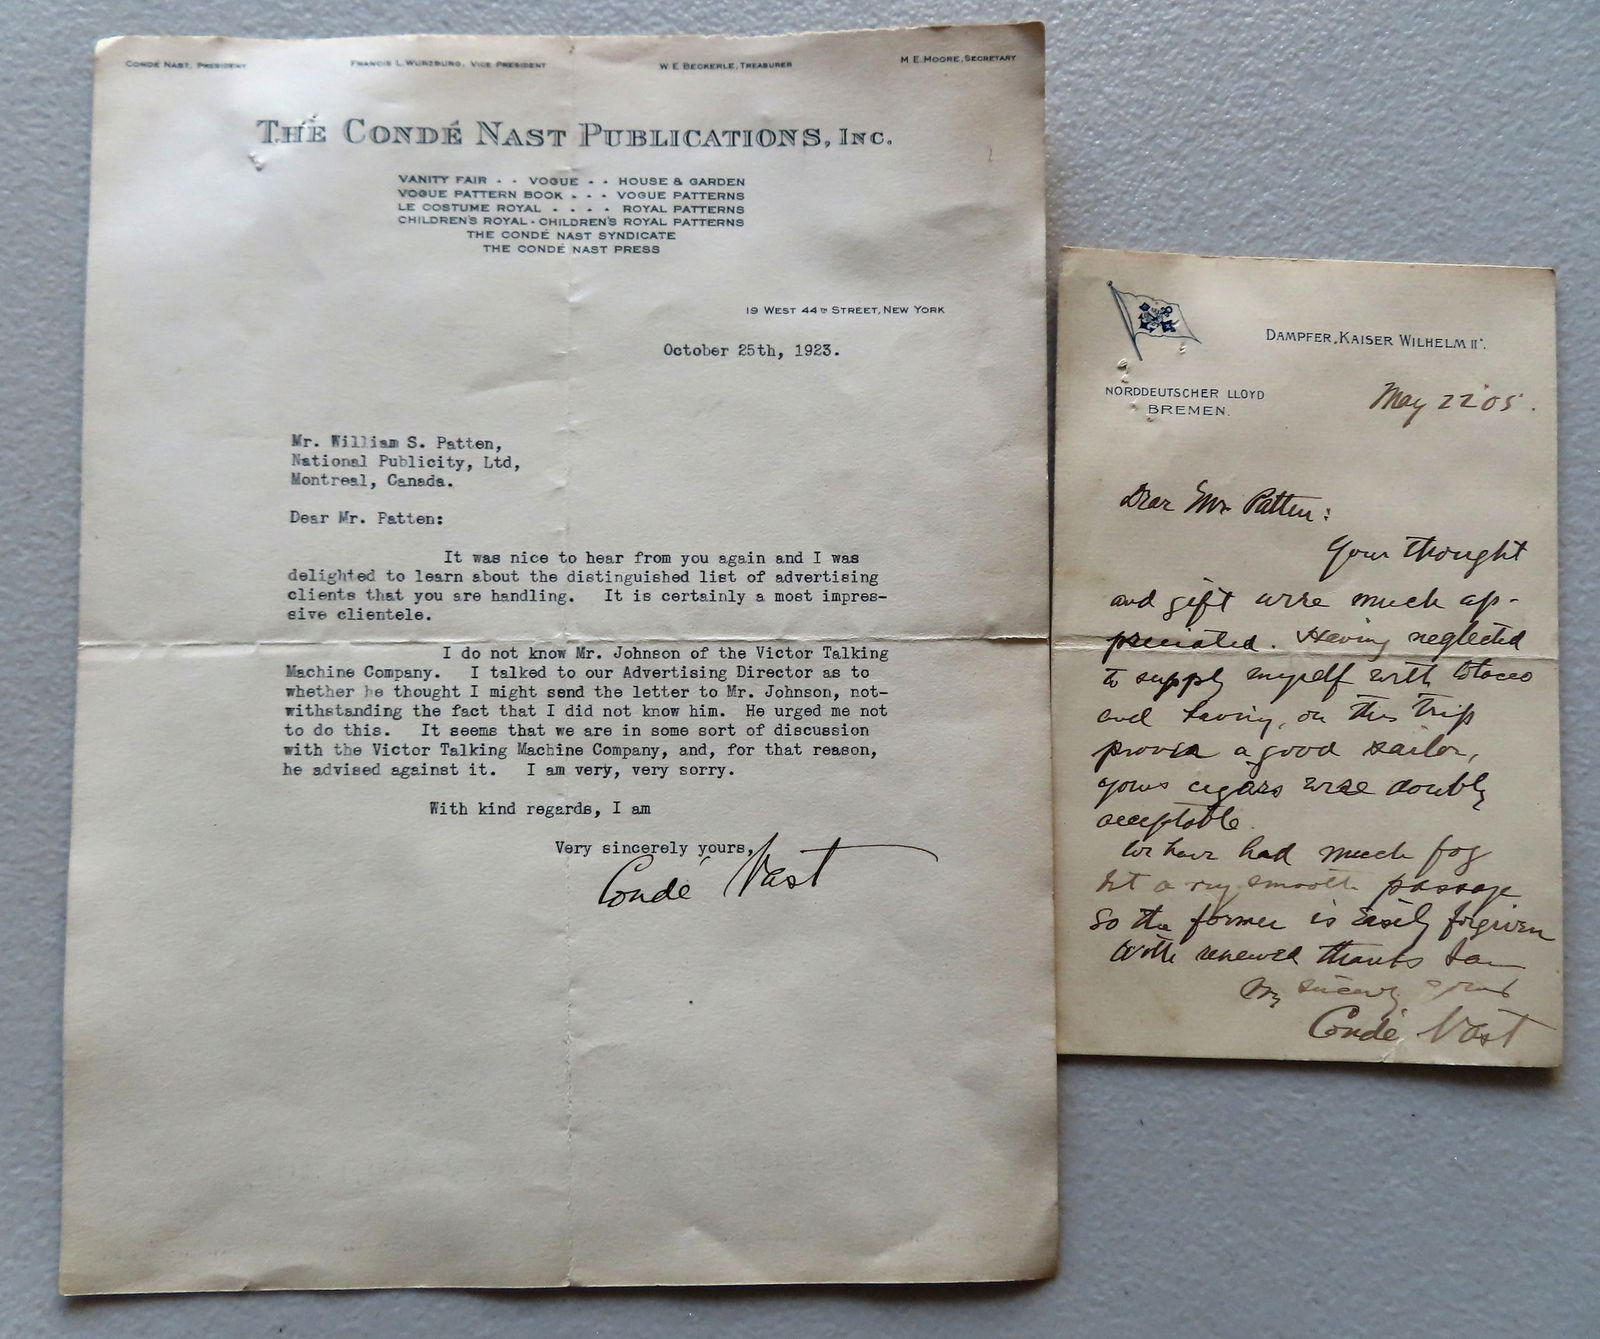 CONDÉ NAST, PRESIDENT
FRANCIS L. WURZBURG, VICE PRESIDENT
W. E. BECKERLE, TREASURER
M. E. MOORE, SECRETARY
THE CONDÉ NAST PUBLICATIONS, INC.
VANITY FAIR - - VOGUE - - HOUSE & GARDEN
VOGUE PATTERN BOOK - - - VOGUE PATTERNS
LE COSTUME ROYAL - - - - ROYAL PATTERNS
CHILDREN'S ROYAL - CHILDREN'S ROYAL PATTERNS
THE CONDÉ NAST SYNDICATE
THE CONDÉ NAST PRESS
19 WEST 44TH STREET, NEW YORK
October 25th, 1923.
Mr. William S. Patten,
National Publicity, Ltd,
Montreal, Canada.
Dear Mr. Patten:
It was nice to hear from you again and I was
delighted to learn about the distinguished list of advertising
clients that you are handling. It is certainly a most impres-
sive clientele.
I do not know Mr. Johnson of the Victor Talking
Machine Company. I talked to our Advertising Director as to
whether he thought I might send the letter to Mr. Johnson, not-
withstanding the fact that I did not know him. He urged me not
to do this. It seems that we are in some sort of discussion
with the Victor Talking Machine Company, and, for that reason,
he advised against it. I am very, very sorry.
With kind regards, I am
Very sincerely yours,
Condé Nast
DAMPFER „KAISER WILHELM II".
NORDDEUTSCHER LLOYD
BREMEN.
May 22 '05.
Dear Mr. Patten:
Your thought
and gift were much ap-
preciated. Having neglected
to supply myself with tobacco
and having, on this trip
proven a good sailor,
your cigars were doubly
acceptable.
We have had much fog
but a very smooth passage
So the former is easily forgiven
With renewed thanks I am
sincerely yours
Condé Nast